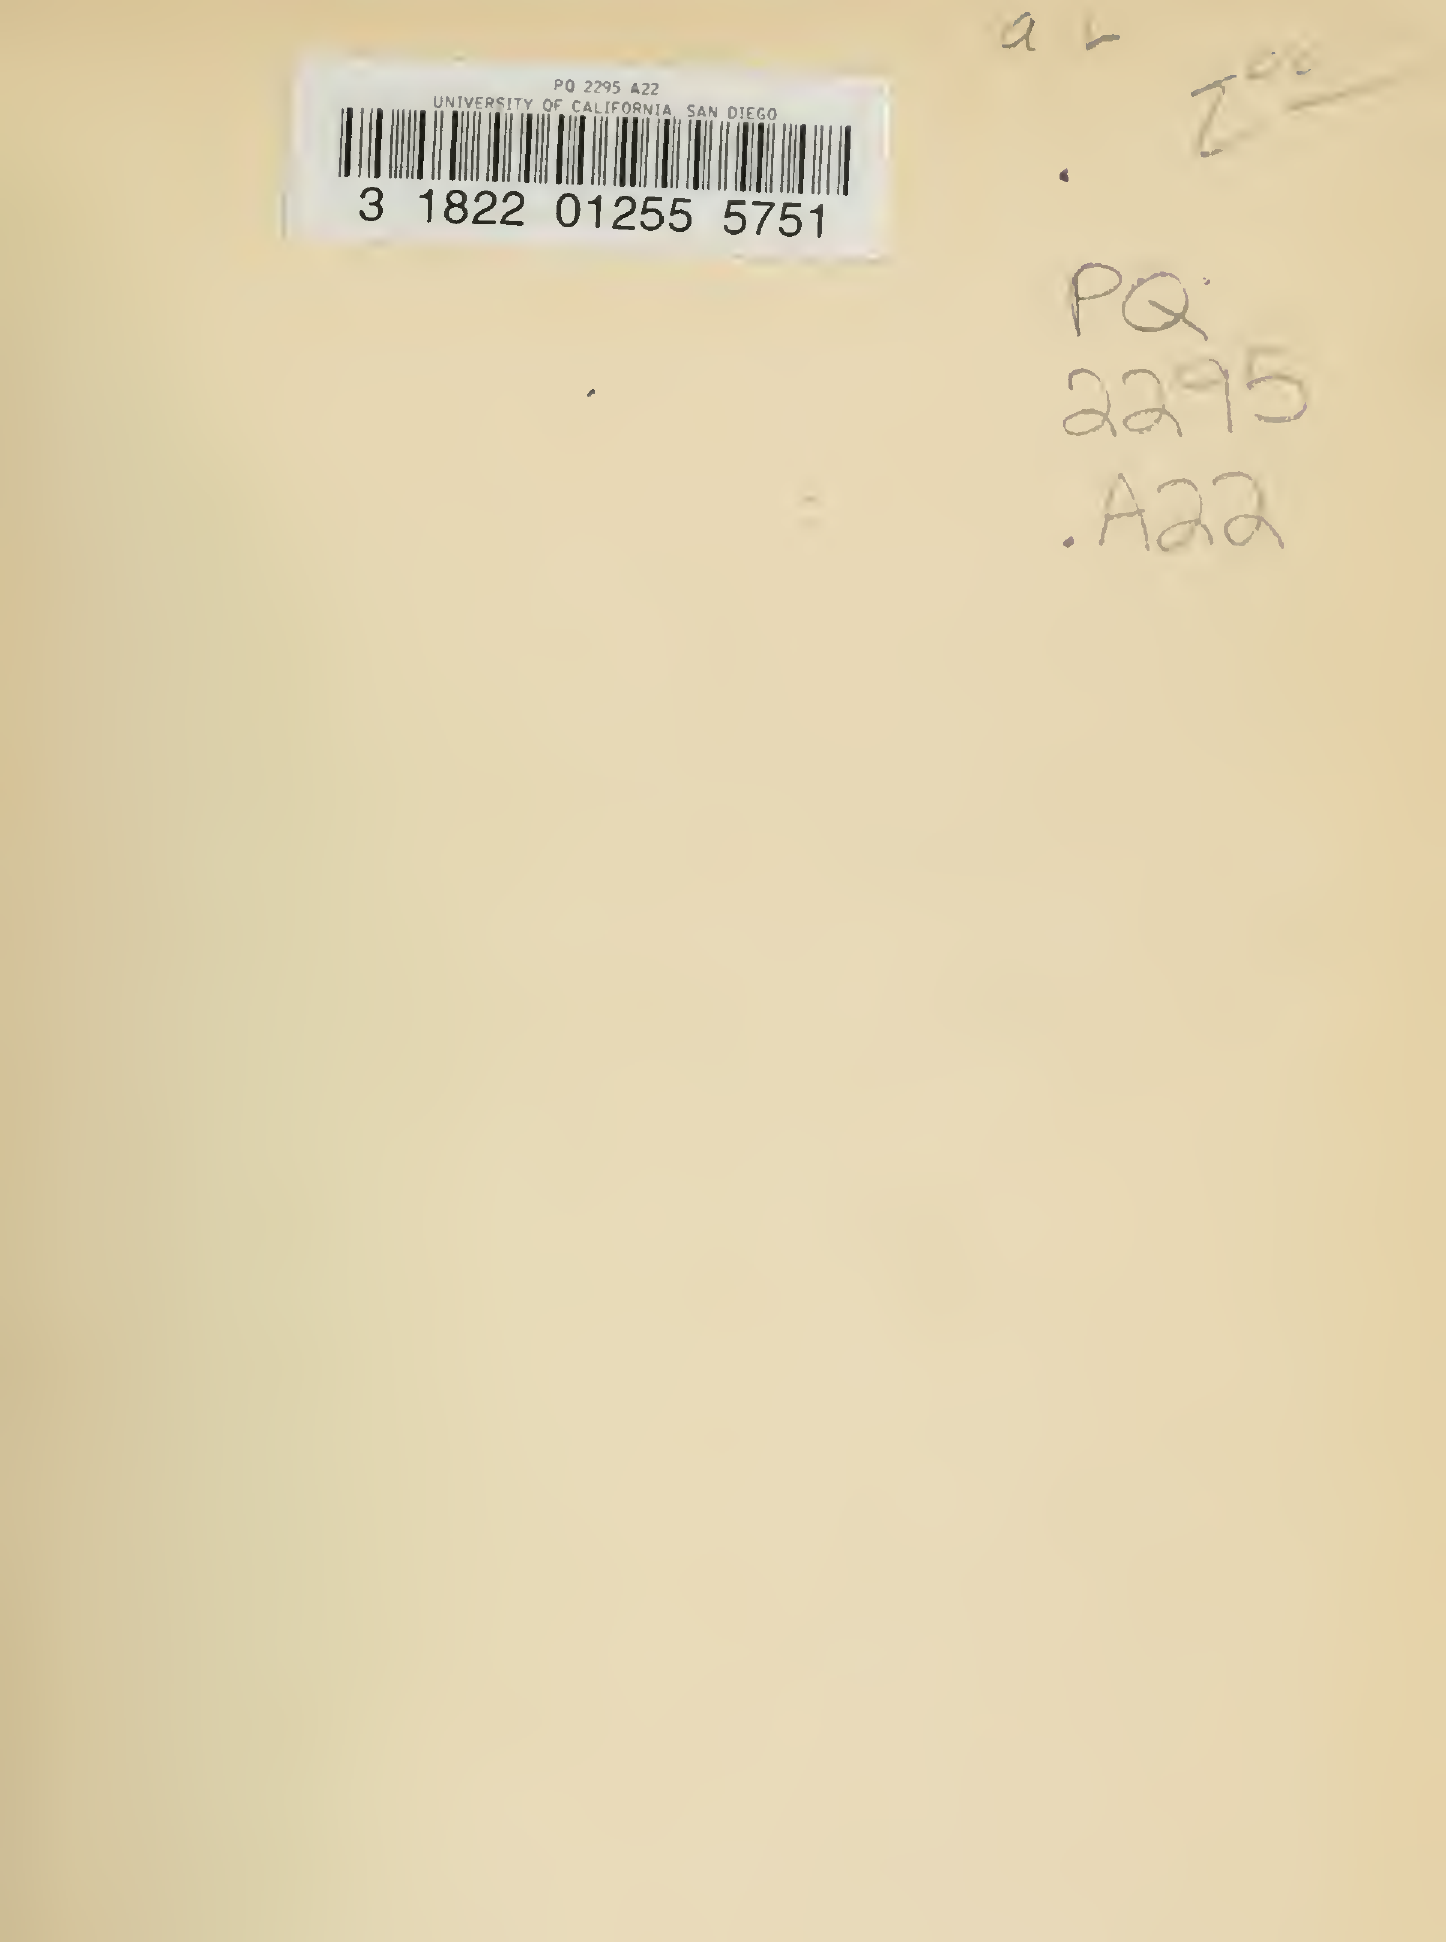 PQ 2295 A22
UNIVERSITY OF CALIFORNIA, SAN DIEGO
3 1822 01255 5751
PQ
2295
.A22